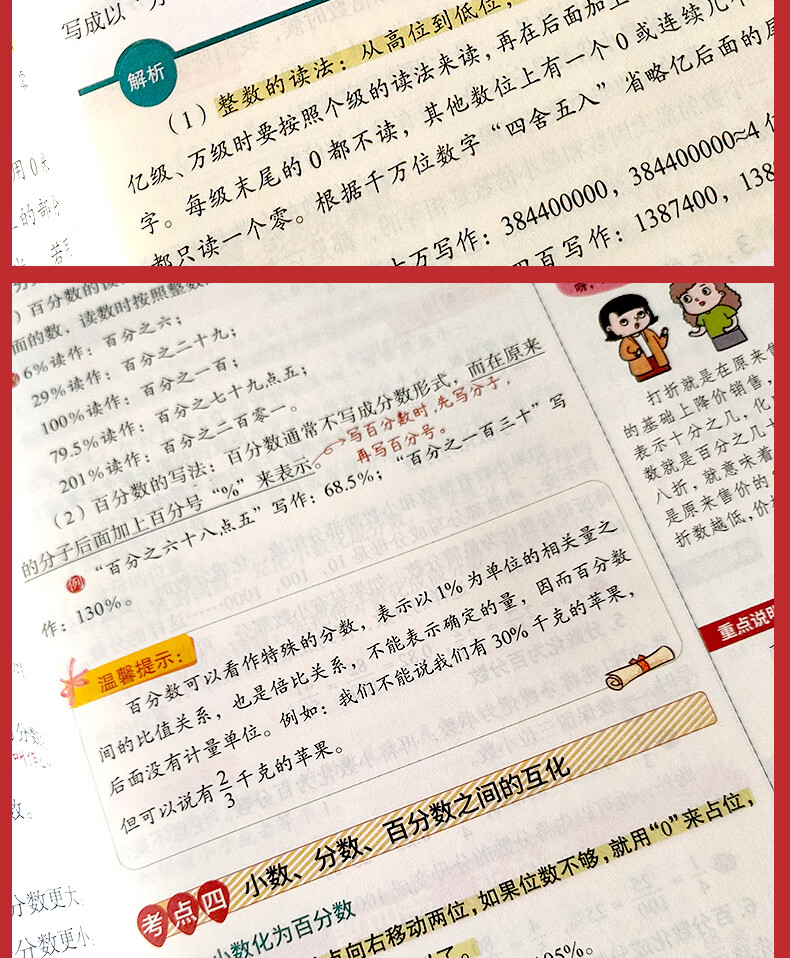 写成以“万
解析
（1）整数的读法：从高位到低位，
亿级、万级时要按照个级的读法来读，再在后面加上
字。每级末尾的0都不读，其他数位上有一个0或连续几个
都只读一个零。根据千万位数字“四舍五入”省略亿后面的尾
上万写作：384400000，384400000≈4亿
四百写作：1387400，138
用0来
上的部分
百分数的读
面的数，读数时按照整数
6%读作：百分之六；
29%读作：百分之二十九；
100%读作：百分之一百；
79.5%读作：百分之七十九点五；
201%读作：百分之二百零一。
（2）百分数的写法：百分数通常不写成分数形式，而在原来
的分子后面加上百分号“%”来表示。
写百分数时，先写分子，
再写百分号。
例 “百分之六十八点五”写作：68.5%；“百分之一百三十”写
作：130%。
温馨提示：
百分数可以看作特殊的分数，表示以1%为单位的相关量之
间的比值关系，也是倍比关系，不能表示确定的量，因而百分数
后面没有计量单位。例如：我们不能说我们有30%千克的苹果，
但可以说有2/3千克的苹果。
考点四 小数、分数、百分数之间的互化
小数化为百分数
点向右移动两位，如果位数不够，就用“0”来占位，
了。
105%。
打折就是在原来售
的基础上降价销售，
表示十分之几，化
数就是百分之几十
八折，就意味着
是原来售价的
折数越低，价
重点说明
数。
分数更大
分数更小